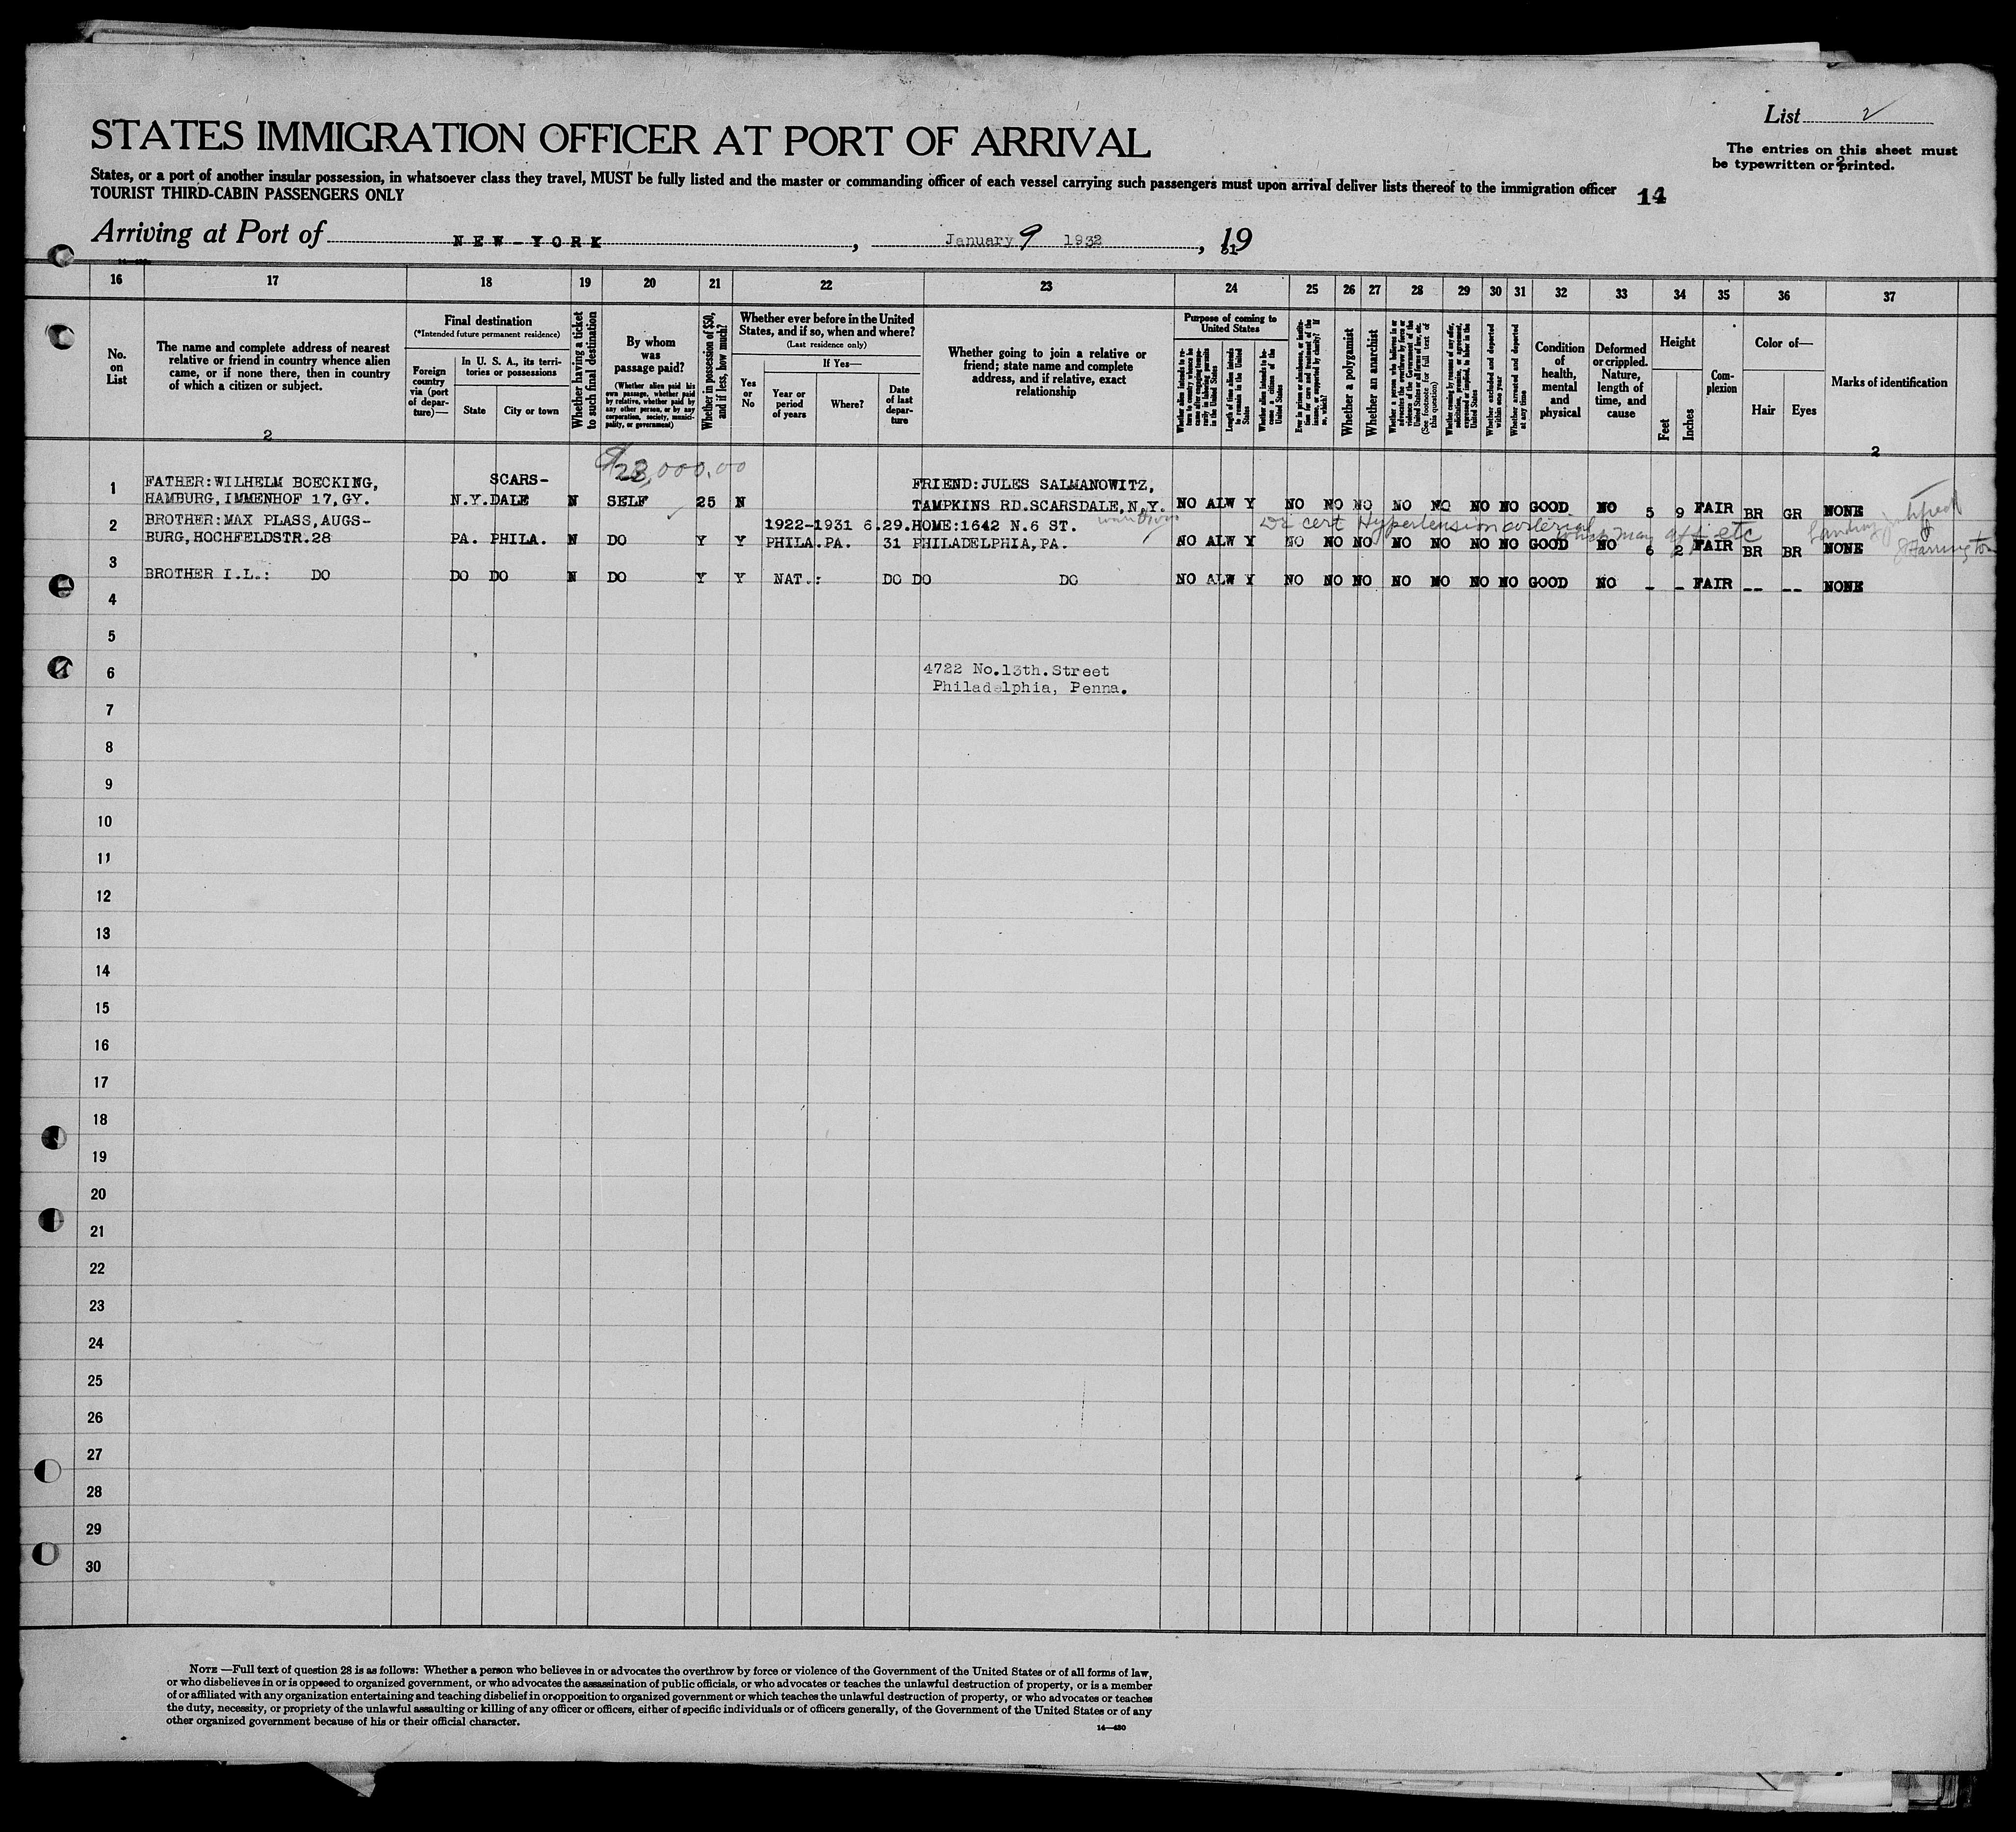 List 2
STATES IMMIGRATION OFFICER AT PORT OF ARRIVAL
The entries on this sheet must
be typewritten or printed.
2
States, or a port of another insular possession, in whatsoever class they travel, MUST be fully listed and the master or commanding officer of each vessel carrying such passengers must upon arrival deliver lists thereof to the immigration officer
TOURIST THIRD-CABIN PASSENGERS ONLY
14
Arriving at Port of NEW-YORK, January 9 1932, 19
16 17 18 19 20 21 22 23 24 25 26 27 28 29 30 31 32 33 34 35 36 37
No. on List
The name and complete address of nearest
relative or friend in country whence alien
came, or if none there, then in country
of which a citizen or subject.
2
Final destination
(*Intended future permanent residence)
Foreign country via (port of departure)—
In U. S. A., its territories or possessions
State
City or town
Whether having a ticket to such final destination
By whom was passage paid?
(Whether alien paid his own passage, whether paid by relative, whether paid by any other person, or by any corporation, society, municipality, or government)
Whether in possession of $50, and if less, how much?
Whether ever before in the United
States, and if so, when and where?
(Last residence only)
Yes or No
If Yes—
Year or period of years
Where?
Date of last departure
Whether going to join a relative or
friend; state name and complete
address, and if relative, exact
relationship
Purpose of coming to
United States
Length of time alien intends to remain in the United States
Whether alien intends to become a citizen of the United States
Whether a polygamist
Whether an anarchist
(See footnote for full text of this question)
Whether excluded and deported within one year
Whether arrested and deported at any time
Condition of health, mental and physical
Deformed or crippled. Nature, length of time, and cause
Height
Feet
Inches
Complexion
Color of—
Hair
Eyes
Marks of identification
2
$23,000.00
1 FATHER:WILHELM BOECKING, SCARS- FRIEND:JULES SALMANOWITZ,
HAMBURG,IMMENHOF 17,GY. N.Y.DALE N SELF 25 N TAMPKINS RD.SCARSDALE,N.Y. NO ALW Y NO NO NO NO NO NO NO GOOD NO 5 9 FAIR BR GR NONE
2 BROTHER:MAX PLASS,AUGS- 1922-1931 6.29. HOME:1642 N.6 ST. Dr cert Hypertension arterial
BURG,HOCHFELDSTR.28 PA. PHILA. N DO Y Y PHILA.PA. 31 PHILADELPHIA,PA. NO ALW Y NO NO NO NO NO NO NO GOOD NO 6 2 FAIR BR BR NONE
which may aff etc
3 BROTHER I.L.: DO DO DO N DO Y Y NAT.: DO DO DO NO ALW Y NO NO NO NO NO NO NO GOOD NO - - FAIR -- -- NONE
4
5
6 4722 No.13th.Street
Philadelphia, Penna.
7
8
9
10
11
12
13
14
15
16
17
18
19
20
21
22
23
24
25
26
27
28
29
30
NOTE —Full text of question 28 is as follows: Whether a person who believes in or advocates the overthrow by force or violence of the Government of the United States or of all forms of law,
or who disbelieves in or is opposed to organized government, or who advocates the assassination of public officials, or who advocates or teaches the unlawful destruction of property, or is a member
of or affiliated with any organization entertaining and teaching disbelief in or opposition to organized government or which teaches the unlawful destruction of property, or who advocates or teaches
the duty, necessity, or propriety of the unlawful assaulting or killing of any officer or officers, either of specific individuals or of officers generally, of the Government of the United States or of any
other organized government because of his or their official character.
14—430